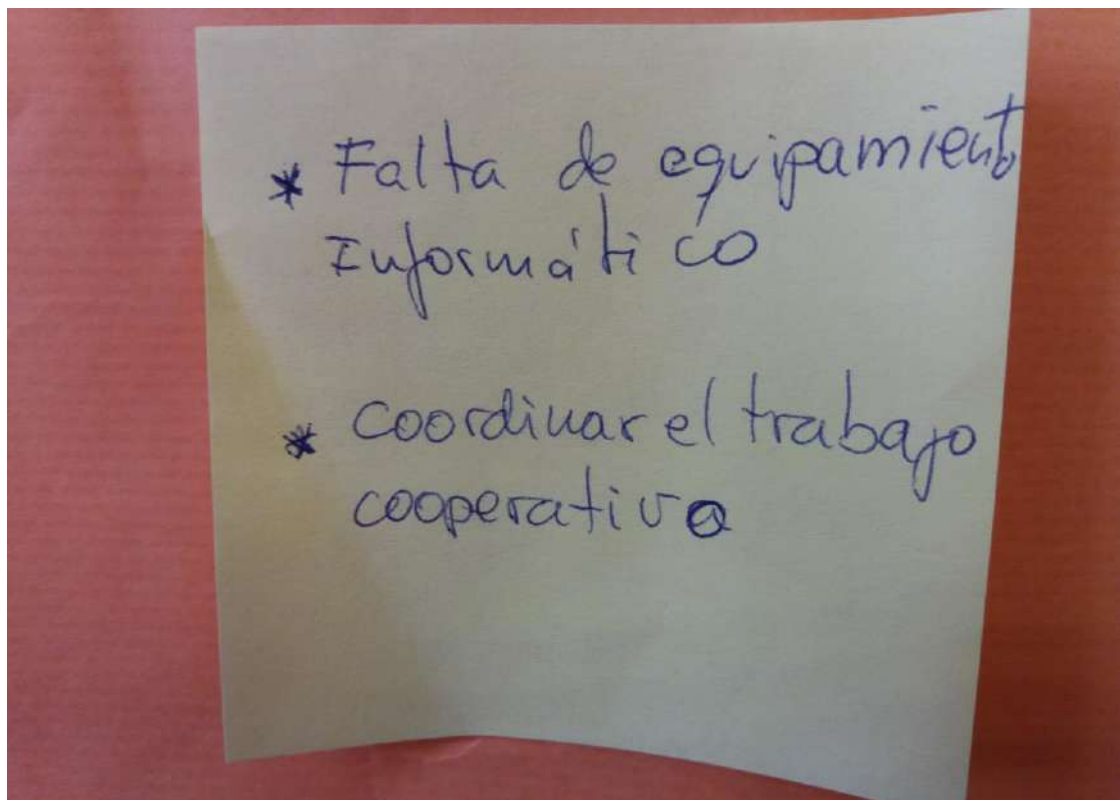 * Falta de equipamiento
Informático
* Coordinar el trabajo
cooperativo